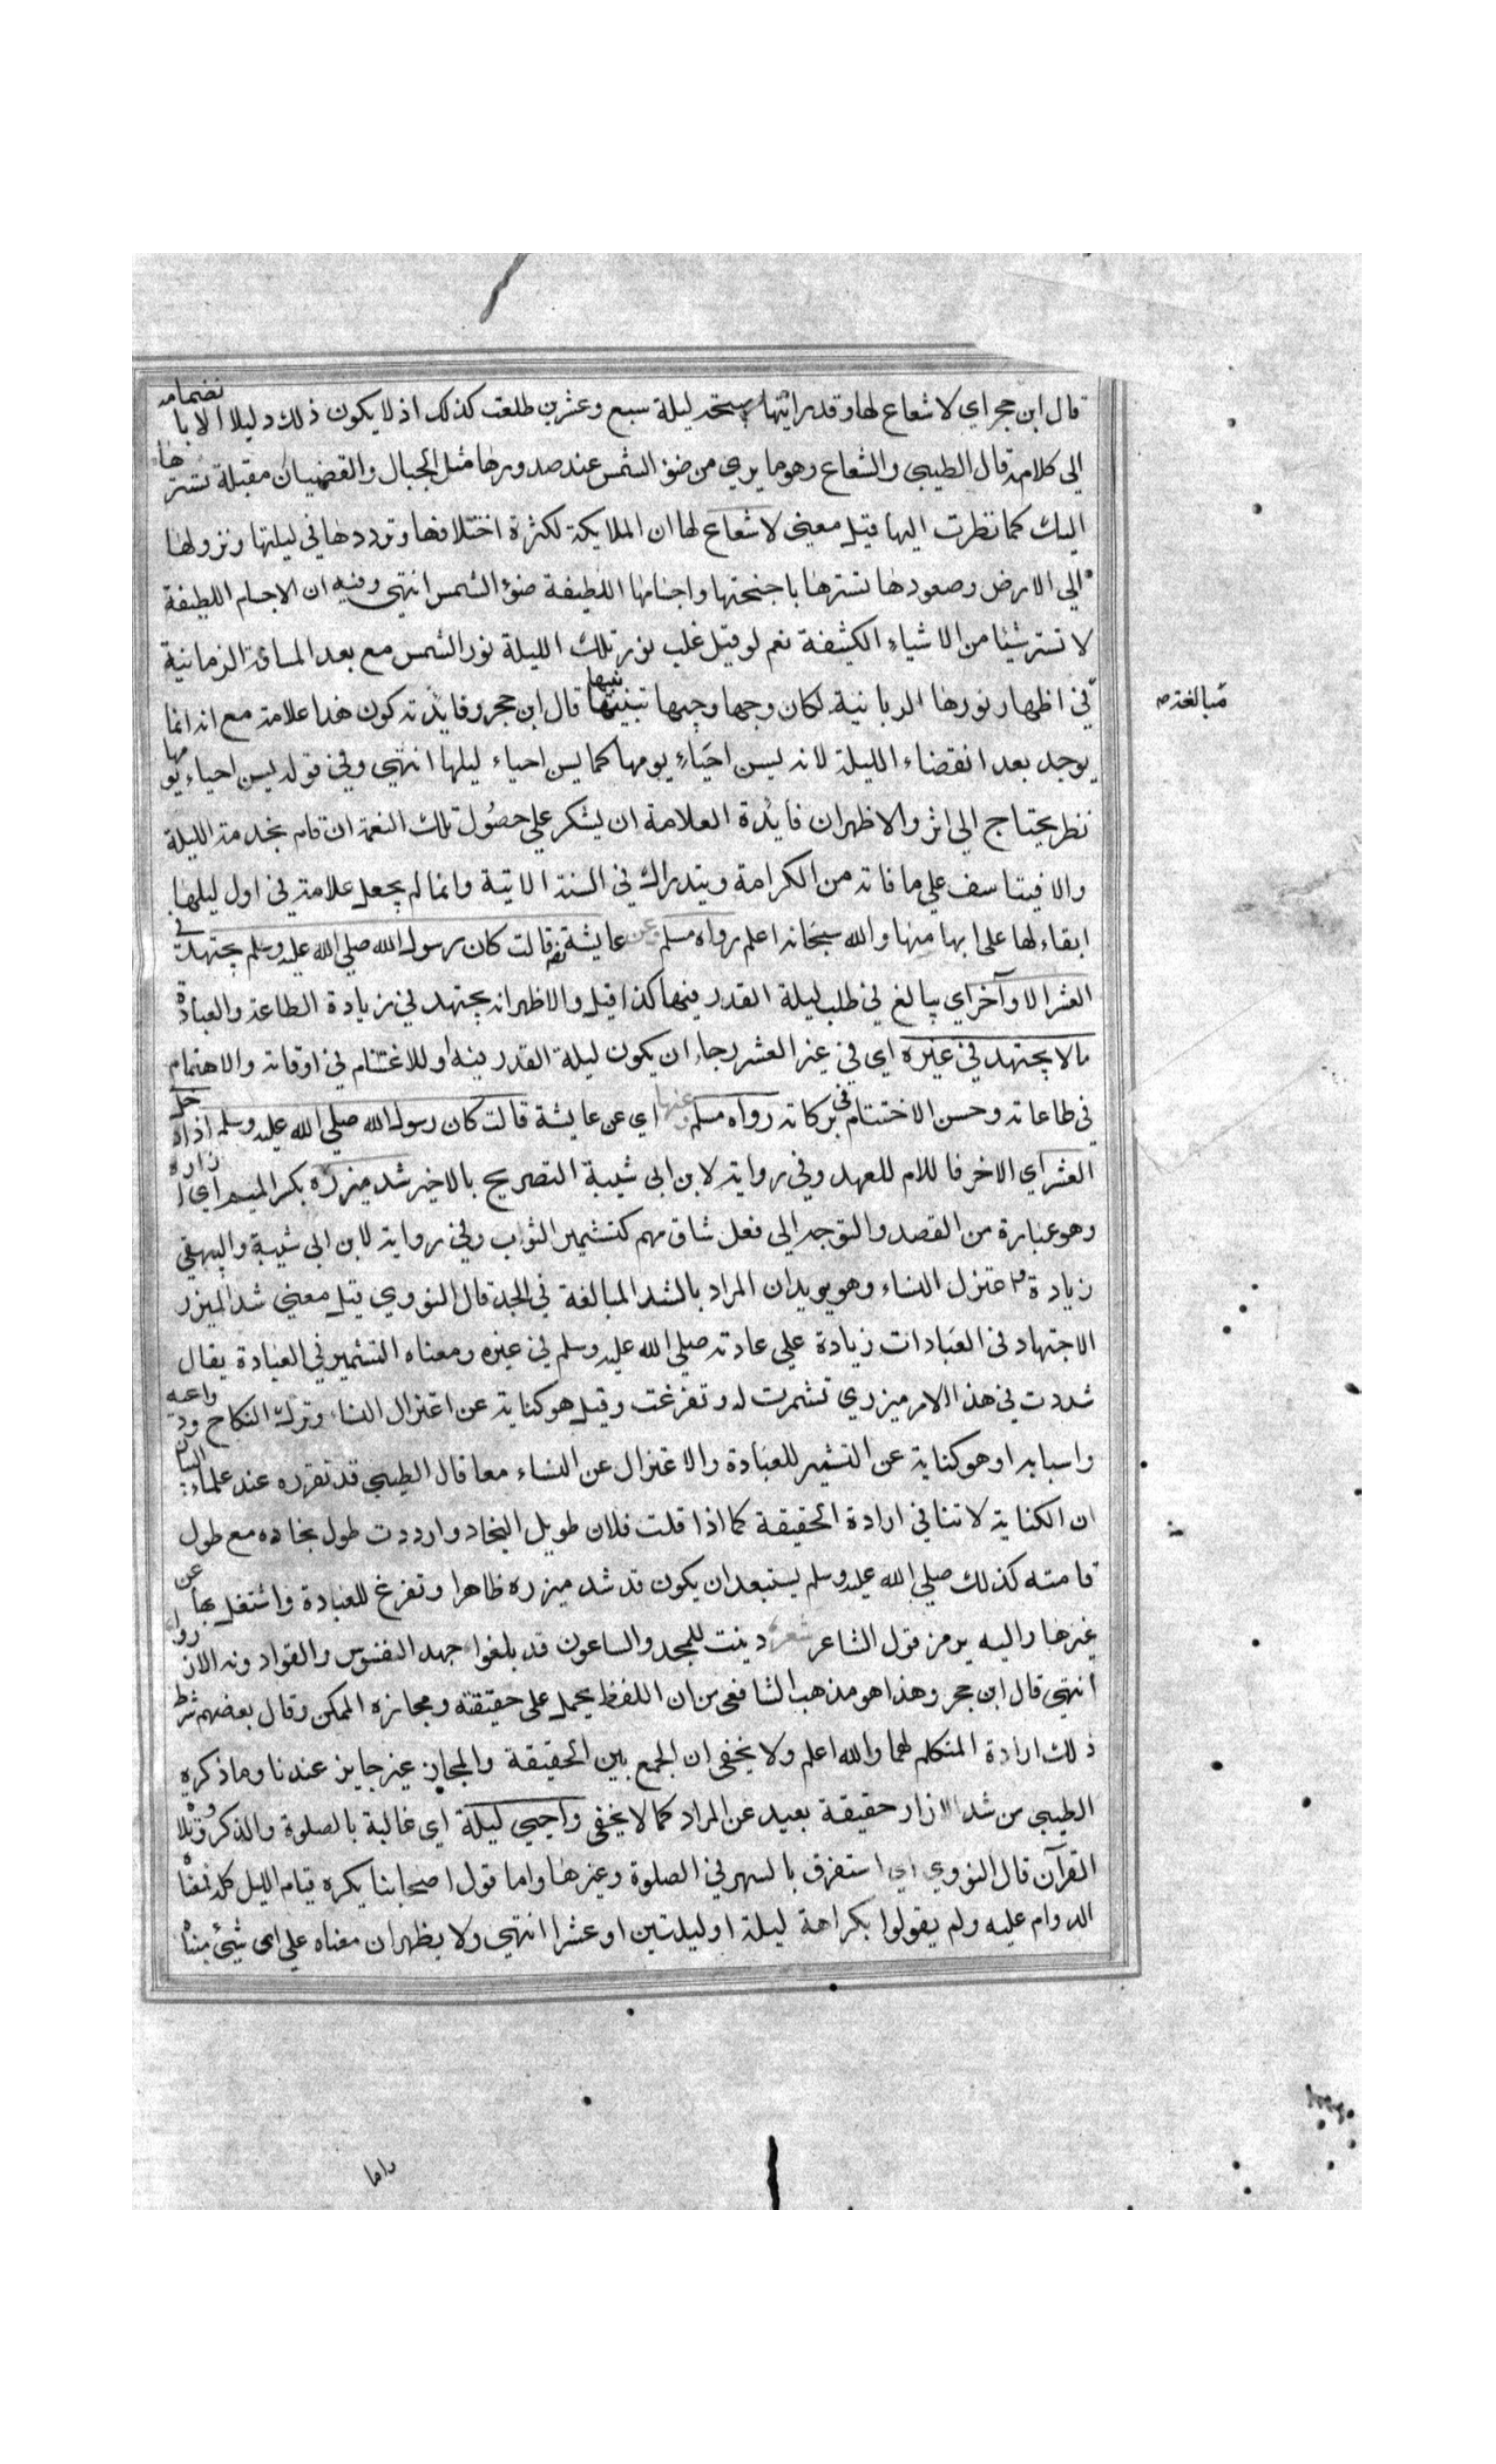 قال ابن حجر اي لا شعاع لها وقد رايتها صبيحة ليلة سبع وعشرين طلعت كذلك اذ لا يكون ذلك دليلا الا بانضمامه
الى كلامه قال الطيبي والشعاع هو ما يرى من ضوء الشمس عند صدورها مثل الحبال والقضبان مقبلة
اليك كما نظرت اليها قيل معنى لا شعاع لها ان الملايكة لكثرة اختلافها وترددها في ليلتها ونزولها
الى الارض وصعودها تسترها باجنحتها واجسامها اللطيفة ضوء الشمس انتهى وفيه ان الاجسام اللطيفة
لا تستر شيئا من الاشياء الكثيفة نعم لو قيل غلب نور تلك الليلة نور الشمس مع بعد المسافة الزمانية
مبالغة
في اظهار نورها الربانية لكان وجها وجيها تنبيها قال ابن حجر وفايدته كون هذا علامة مع انه انما
يوجد بعد انقضاء الليلة لانه ليسن احياء يومها كما يسن احياء ليلها انتهى وفي قوله يسن احياء يومها
نظر يحتاج الى اثر والاظهر ان فايدة العلامة ان يشكر على حصول تلك النعمة ان قام بخدمة الليلة
والا فيتاسف على ما فاته من الكرامة ويتدراك في السنة الاتية وانما لم يجعل علامة في اول ليلها
ابقاء لها على ابهامها والله سبحانه اعلم رواه مسلم عن عايشة قالت كان رسول الله صلى الله عليه وسلم يجتهد في
العشر الاواخر اي يبالغ في طلب ليلة القدر فيها كذا قيل والاظهر انه يجتهد في زيادة الطاعة والعبادة
ما لا يجتهد في غيره اي في غير العشر رجاء ان يكون ليلة القدر فيه او للاغتنام في اوقاته والاهتمام
في طاعاته وحسن الاختتام في بركاته رواه مسلم وعنها اي عن عايشة قالت كان رسول الله صلى الله عليه وسلم اذا دخل
العشر اي الاخر فاللام للعهد وفي رواية لابن ابى شيبة التصريح بالاخير شد ميزره بكسر الميم اي ازاره
وهو عبارة من القصد والتوجه الى فعل شاق مهم كتشمير الثواب وفي رواية لابن ابى شيبة والبيهقي
زيادة واعتزل النساء وهو يويد ان المراد بالشد المبالغة في الجد قال النووي قيل معنى شد الميزر
الاجتهاد في العبادات زيادة على عادته صلى الله عليه وسلم في غيره ومعناه التشمير في العبادة يقال
شددت في هذا الامر ميزري تشمرت له وتفرغت وقيل هو كناية عن اعتزال النساء وترك النكاح ودواعيه
واسبابه او هو كناية عن التشمير للعبادة والاعتزال عن النساء معا قال الطيبي قد تقرر عند علماء البيان
ان الكناية لا تنافي ارادة الحقيقة كما اذا قلت فلان طويل النجاد واردت طول نجاده مع طول
قامته كذلك صلى الله عليه وسلم يستبعد ان يكون قد شد ميزره ظاهرا وتفرغ للعبادة واشتغل بها عن
غيرها واليه يرمز قول الشاعر شعر دينت للمجد والساعون قد بلغوا جهد النفوس والقوا دونه الازرا
انتهى قال ابن حجر وهذا هو مذهب الشافعي من ان اللفظ يحمل على حقيقته ومجازه الممكن وقال بعضهم شرط
ذلك ارادة المتكلم لهما والله اعلم ولا يخفى ان الجمع بين الحقيقة والمجاز غير جايز عندنا وما ذكره
الطيبي من شد الازار حقيقة بعيد عن المراد كما لا يخفى واحيى ليلة اي غالبه بالصلوة والذكر وتلاوة
القرآن قال النووي اي استغرق بالسهر في الصلوة وغيرها واما قول اصحابنا يكره قيام الليل كله فمعناه
الدوام عليه ولم يقولوا بكراهة ليلة او ليلتين او عشرا انتهى ولا يظهر ان معناه على اي شيء مبناه
واما